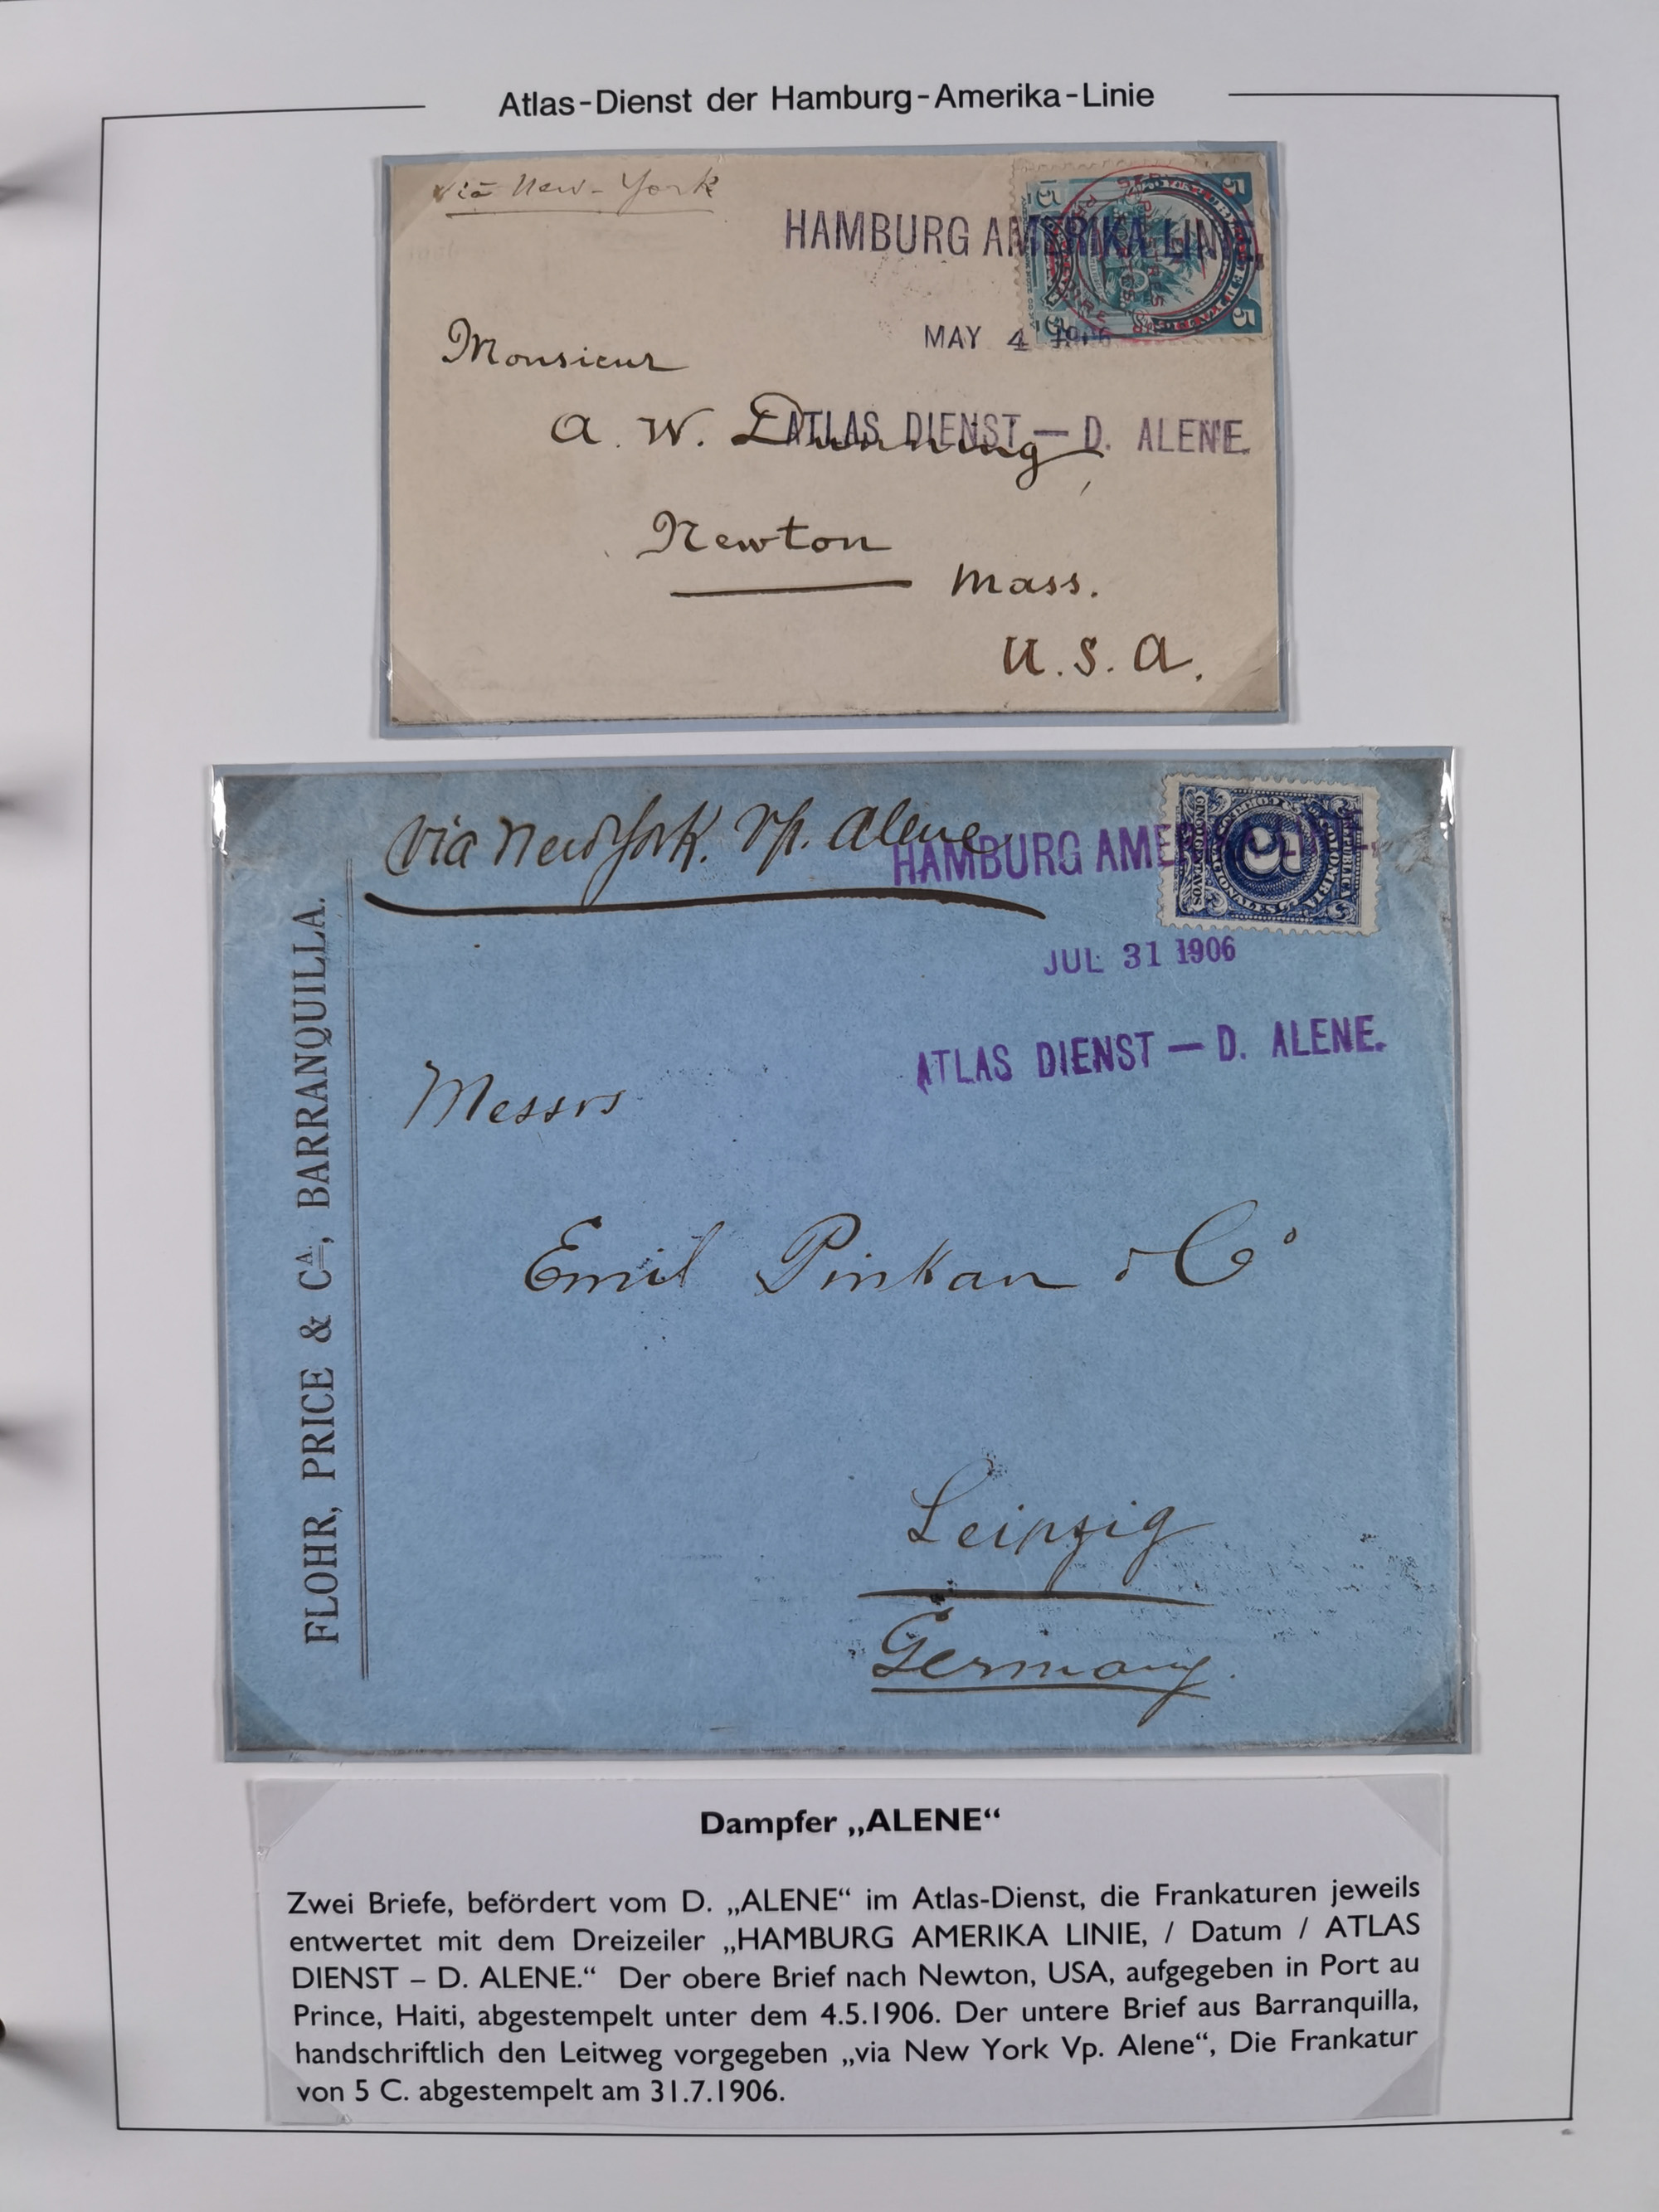 Atlas-Dienst der Hamburg-Amerika-Linie
via New-York
HAMBURG AMERIKA LINIE,
MAY 4 1906
Monsieur
A. W. Dunning,
ATLAS DIENST — D. ALENE.
Newton
Mass.
U.S.A.
5 5
5 5
via New York. Vp. Alene
HAMBURG AMERIKA LINIE,
5
JUL 31 1906
ATLAS DIENST — D. ALENE.
FLOHR, PRICE & CA., BARRANQUILLA.
Messrs
Emil Pinkau & Co
Leipzig
Germany.
Dampfer „ALENE“
Zwei Briefe, befördert vom D. „ALENE“ im Atlas-Dienst, die Frankaturen jeweils
entwertet mit dem Dreizeiler „HAMBURG AMERIKA LINIE, / Datum / ATLAS
DIENST – D. ALENE.“ Der obere Brief nach Newton, USA, aufgegeben in Port au
Prince, Haiti, abgestempelt unter dem 4.5.1906. Der untere Brief aus Barranquilla,
handschriftlich den Leitweg vorgegeben „via New York Vp. Alene“, Die Frankatur
von 5 C. abgestempelt am 31.7.1906.